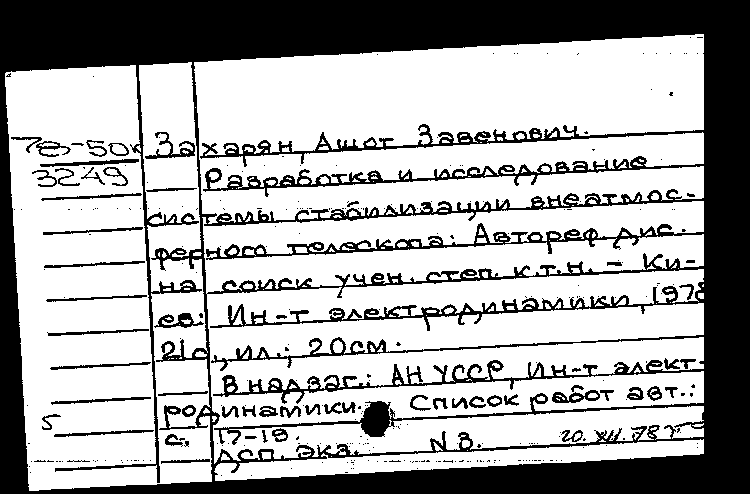 78-50к Захарян, Ашот Завенович.
3249 Разработка и исследование
системы стабилизации внеатмос-
ферного телескопа: Автореф. дис.
на соиск. учен. степ. к.т.н. – Ки-
ев: Ин-т электродинамики, 1978
21с., ил.; 20см.
В надзаг.: АН УССР, Ин-т элект-
родинамики. Список работ авт.:
5 с. 17-19.
ДСП. Экз. N 3. 20.XII.78г